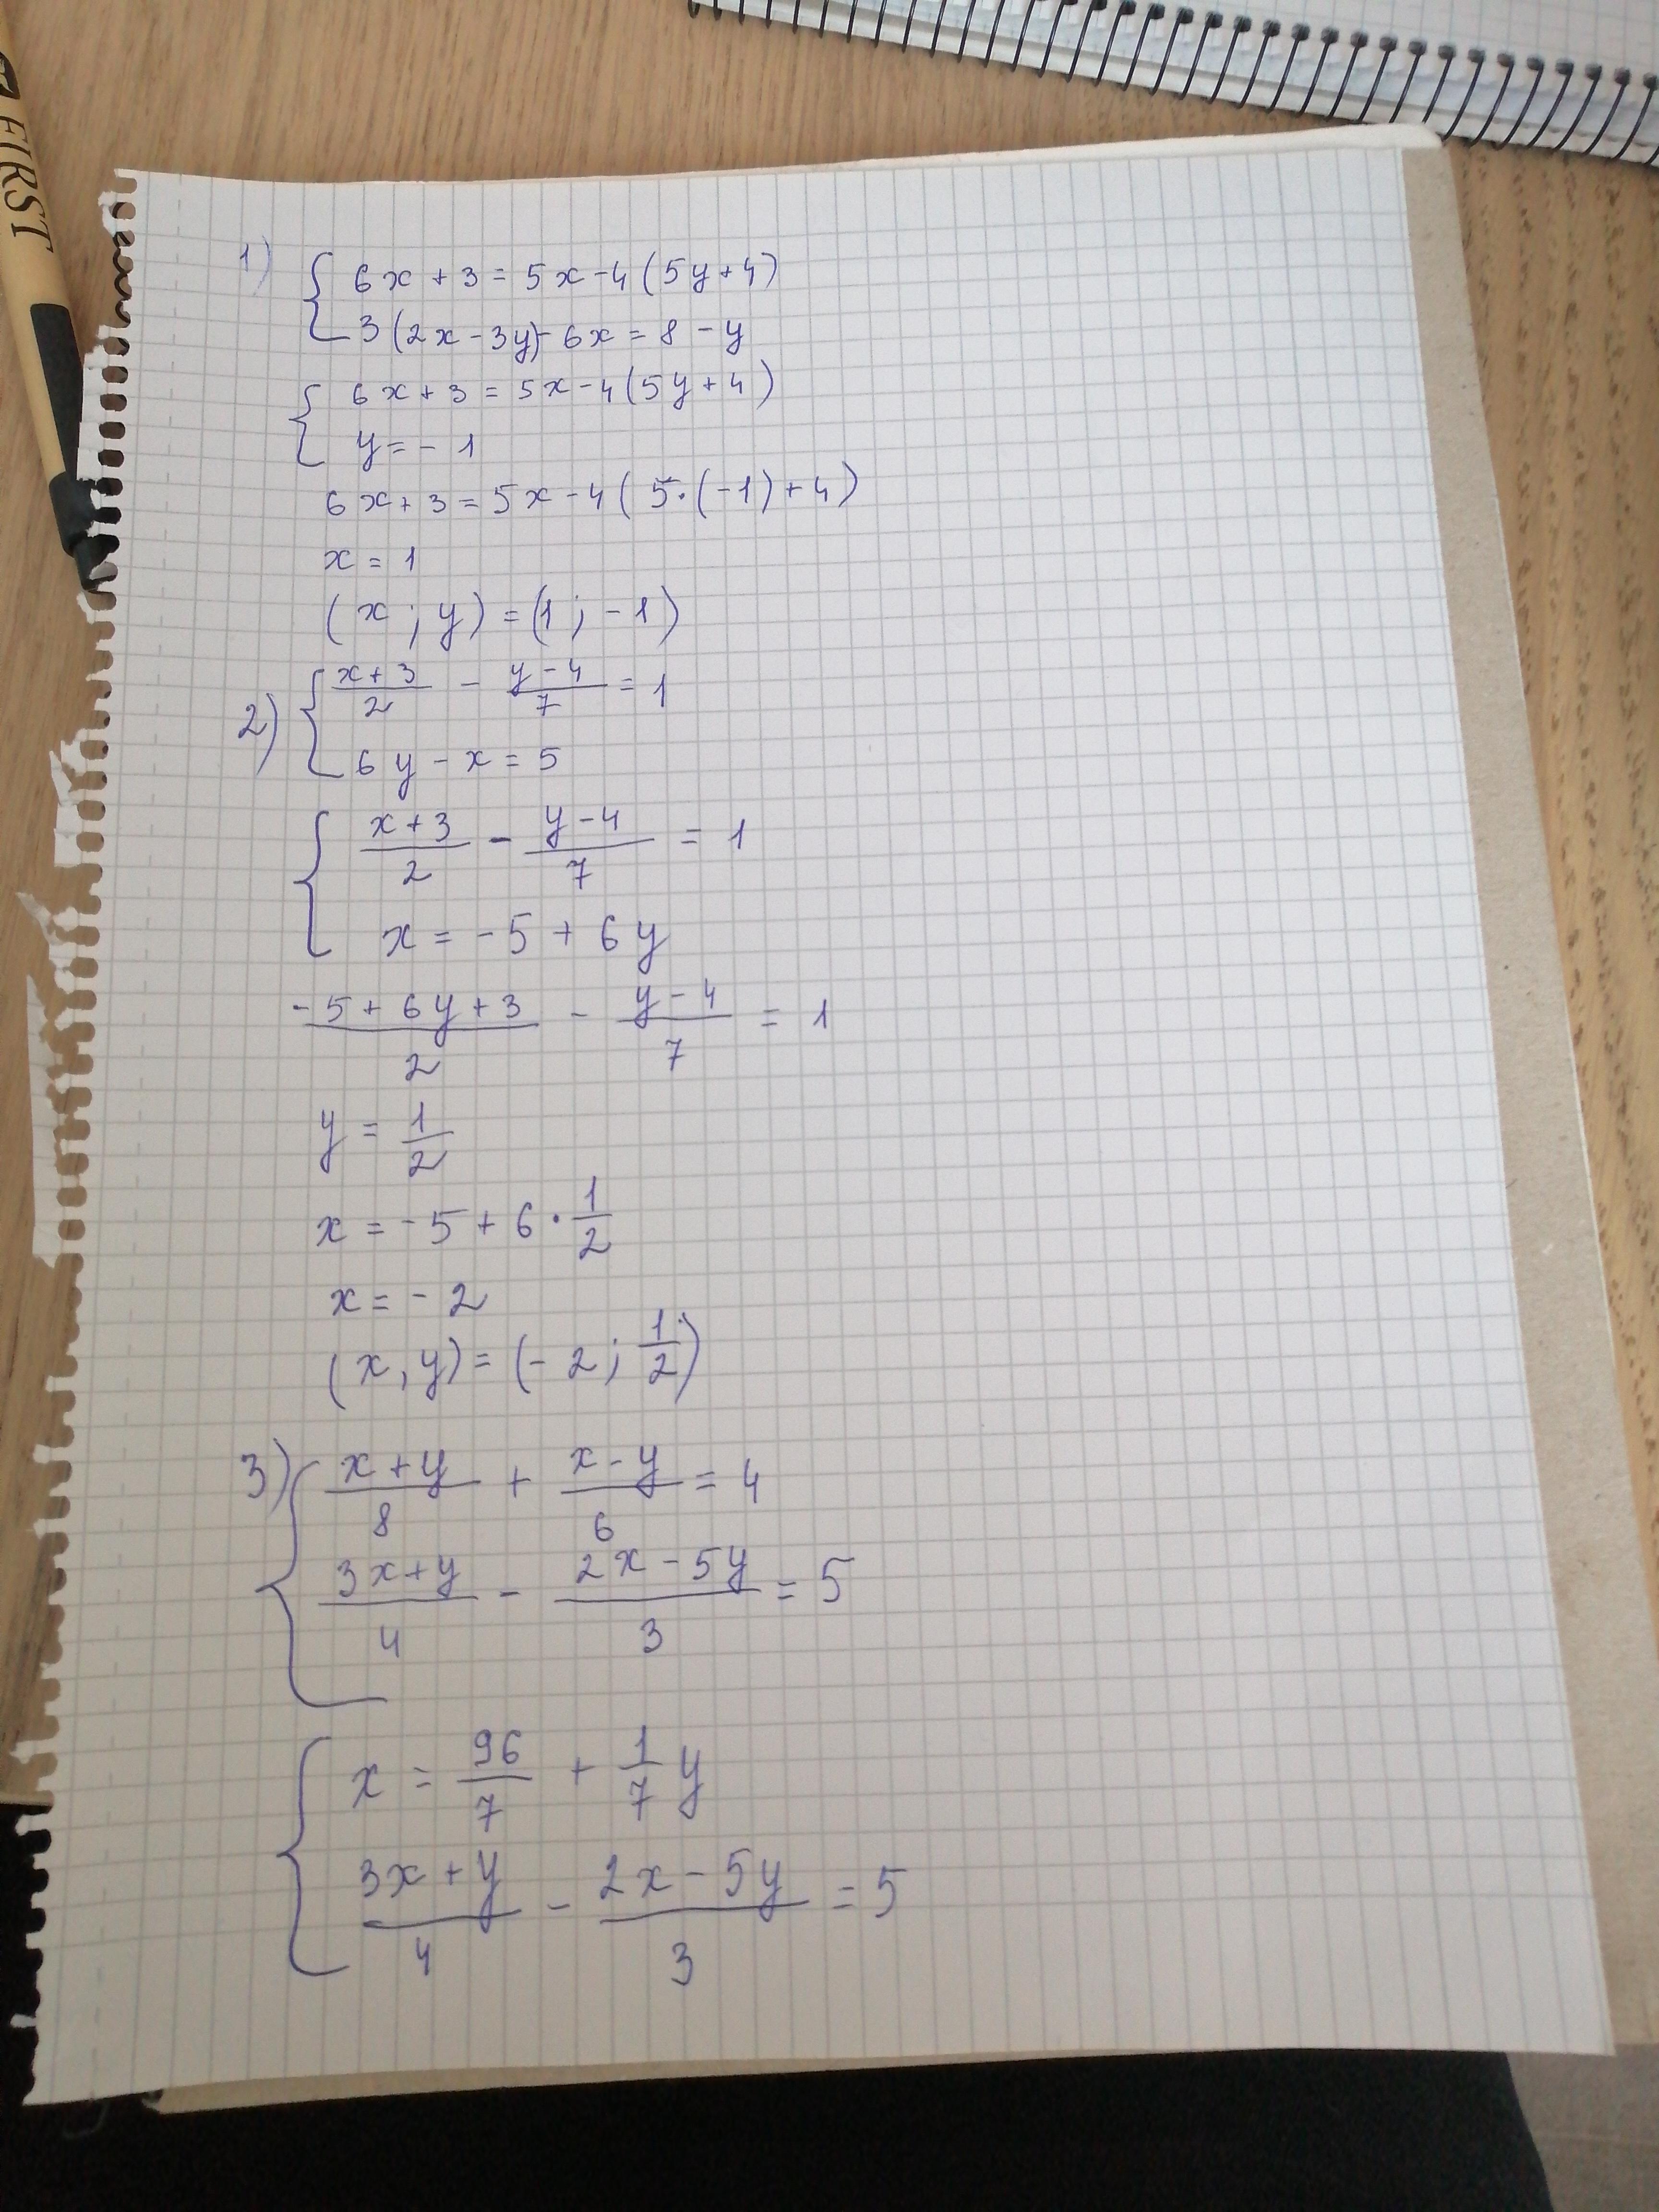 FIRST
1) { 6x + 3 = 5x - 4 (5y + 4)
3 (2x - 3y) - 6x = 8 - y
{ 6x + 3 = 5x - 4 (5y + 4)
y = - 1
6x + 3 = 5x - 4 ( 5 · (-1) + 4)
x = 1
( x ; y ) = (1 ; - 1)
2) { (x + 3)/2 - (y - 4)/7 = 1
6y - x = 5
{ (x + 3)/2 - (y - 4)/7 = 1
x = - 5 + 6y
(- 5 + 6y + 3)/2 - (y - 4)/7 = 1
y = 1/2
x = - 5 + 6 · 1/2
x = - 2
( x , y ) = (- 2 ; 1/2)
3) { (x + y)/8 + (x - y)/6 = 4
(3x + y)/4 - (2x - 5y)/3 = 5
{ x = 96/7 + 1/7 y
(3x + y)/4 - (2x - 5y)/3 = 5